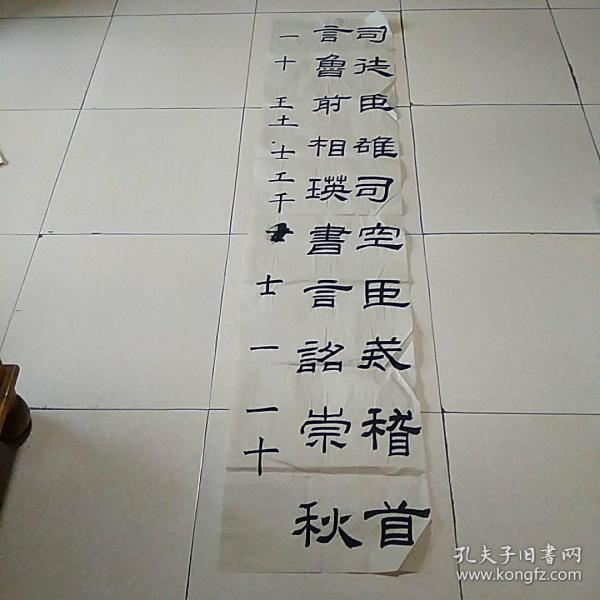 司徒臣雄司空臣戒稽首
言魯前相瑛書言詔崇秋
一十王土士工千士一一十
孔夫子旧书网
www.kongfz.com